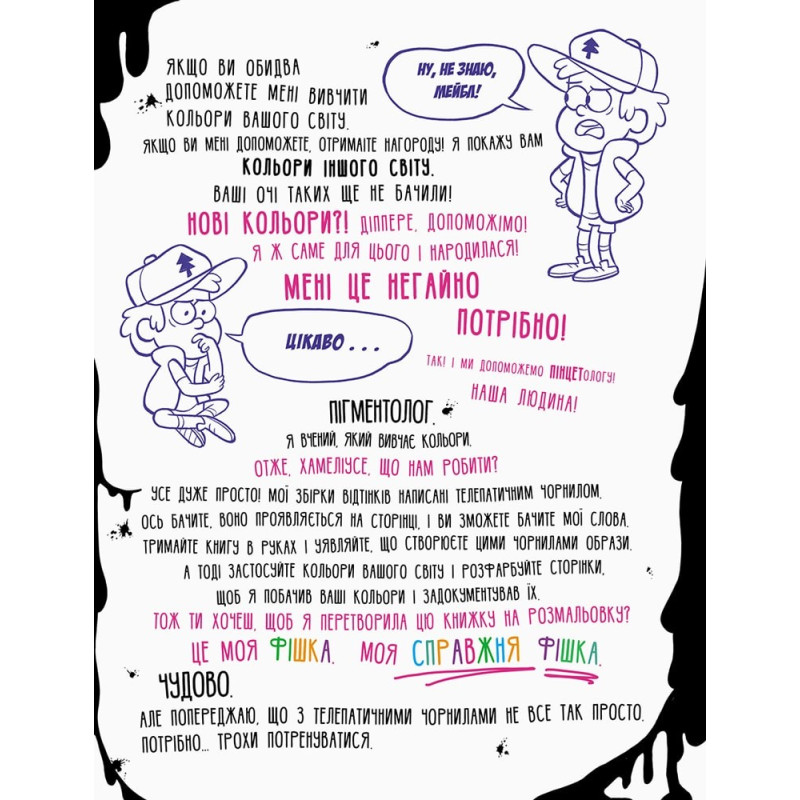 ЯКЩО ВИ ОБИДВА
ДОПОМОЖЕТЕ МЕНІ ВИВЧИТИ
КОЛЬОРИ ВАШОГО СВІТУ.
НУ, НЕ ЗНАЮ,
МЕЙБЛ!
ЯКЩО ВИ МЕНІ ДОПОМОЖЕТЕ, ОТРИМАЙТЕ НАГОРОДУ! Я ПОКАЖУ ВАМ
КОЛЬОРИ ІНШОГО СВІТУ.
ВАШІ ОЧІ ТАКИХ ЩЕ НЕ БАЧИЛИ!
НОВІ КОЛЬОРИ?! ДІППЕРЕ, ДОПОМОЖІМО!
Я Ж САМЕ ДЛЯ ЦЬОГО І НАРОДИЛАСЯ!
МЕНІ ЦЕ НЕГАЙНО
ПОТРІБНО!
ЦІКАВО . . .
ТАК! І МИ ДОПОМОЖЕМО ПІНЦЕТОЛОГУ!
НАША ЛЮДИНА!
ПІГМЕНТОЛОГ.
Я ВЧЕНИЙ, ЯКИЙ ВИВЧАЄ КОЛЬОРИ.
ОТЖЕ, ХАМЕЛІУСЕ, ЩО НАМ РОБИТИ?
УСЕ ДУЖЕ ПРОСТО! МОЇ ЗБІРКИ ВІДТІНКІВ НАПИСАНІ ТЕЛЕПАТИЧНИМ ЧОРНИЛОМ.
ОСЬ БАЧИТЕ, ВОНО ПРОЯВЛЯЄТЬСЯ НА СТОРІНЦІ, І ВИ ЗМОЖЕТЕ БАЧИТЕ МОЇ СЛОВА.
ТРИМАЙТЕ КНИГУ В РУКАХ І УЯВЛЯЙТЕ, ЩО СТВОРЮЄТЕ ЦИМИ ЧОРНИЛАМИ ОБРАЗИ.
А ТОДІ ЗАСТОСУЙТЕ КОЛЬОРИ ВАШОГО СВІТУ І РОЗФАРБУЙТЕ СТОРІНКИ,
ЩОБ Я ПОБАЧИВ ВАШІ КОЛЬОРИ І ЗАДОКУМЕНТУВАВ ЇХ.
ТОЖ ТИ ХОЧЕШ, ЩОБ Я ПЕРЕТВОРИЛА ЦЮ КНИЖКУ НА РОЗМАЛЬОВКУ?
ЦЕ МОЯ ФІШКА. МОЯ СПРАВЖНЯ ФІШКА.
ЧУДОВО.
АЛЕ ПОПЕРЕДЖАЮ, ЩО З ТЕЛЕПАТИЧНИМИ ЧОРНИЛАМИ НЕ ВСЕ ТАК ПРОСТО.
ПОТРІБНО... ТРОХИ ПОТРЕНУВАТИСЯ.